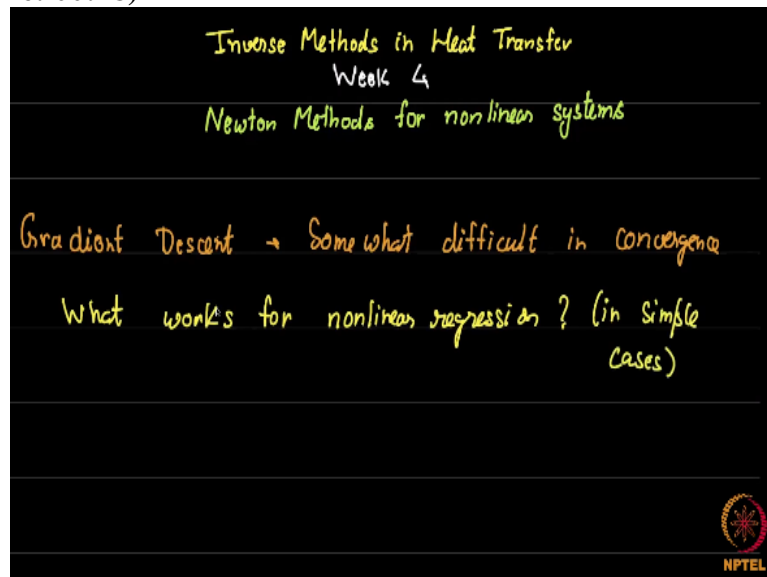 Inverse Methods in Heat Transfer
Week 4
Newton Methods for nonlinear systems
Gradient Descent → Somewhat difficult in convergence
What works for nonlinear regression? (in simple
cases)
NPTEL